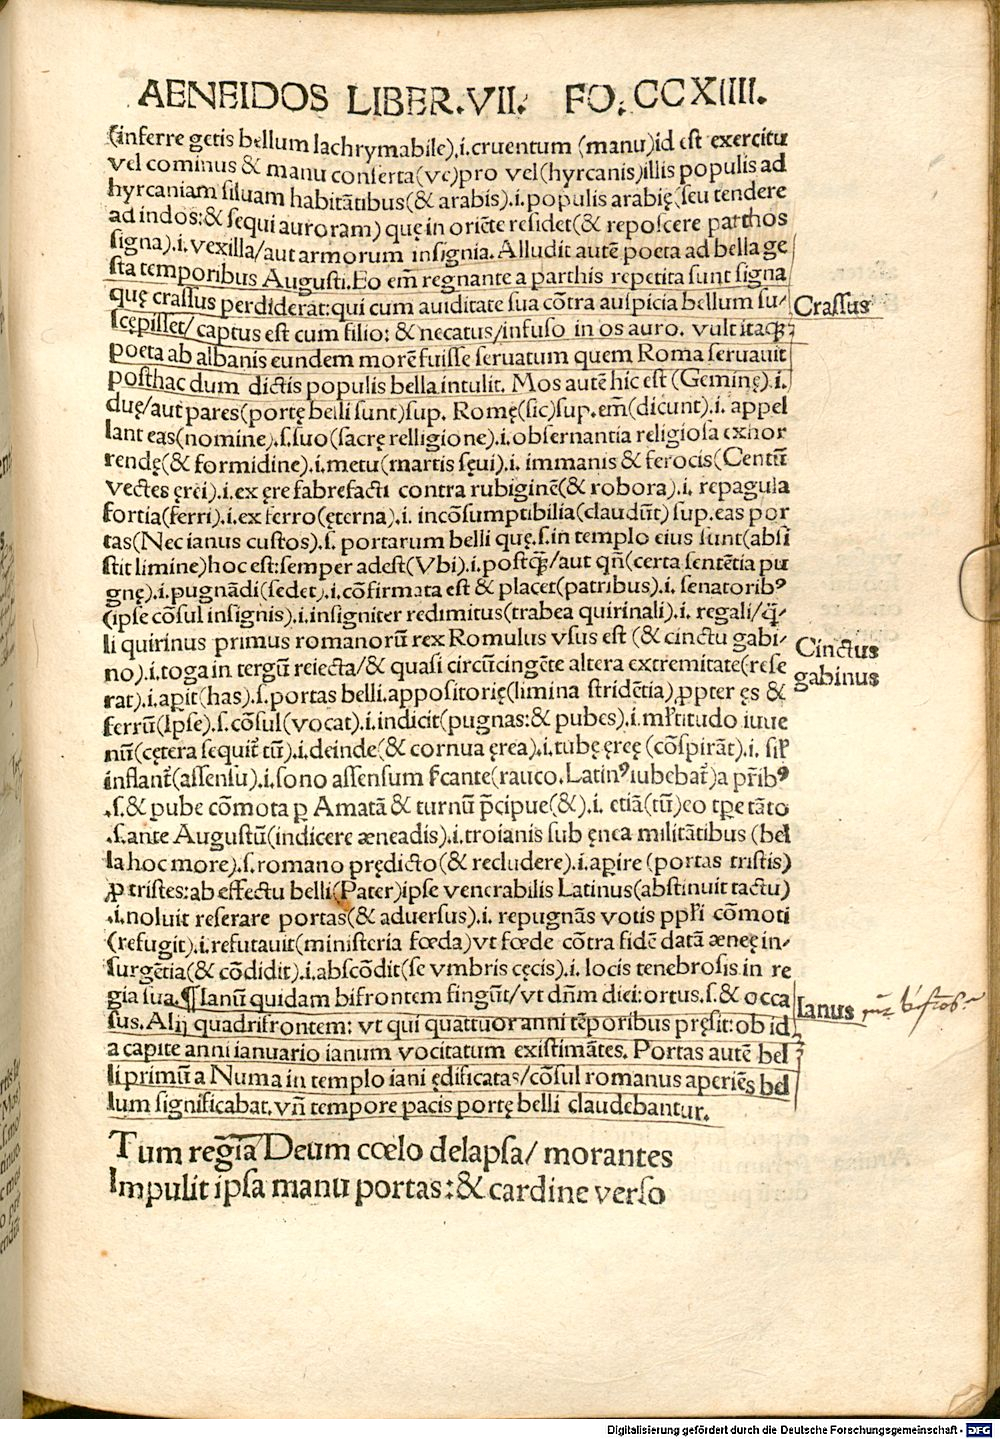 AENEIDOS LIBER.VII. FO.CCXIIII.
(inferre getis bellum lachrymabile).i.cruentum (manu)id est exercitu
vel cominus & manu conserta(ve)pro vel(hyrcanis)illis populis ad
hyrcaniam siluam habitãtibus(& arabis).i.populis arabię(seu tendere
ad indos:& sequi auroram) quę in oriẽte residet(& reposcere parthos
signa).i.vexilla/aut armorum insignia. Alludit autẽ poeta ad bella ge
sta temporibus Augusti. Eo em̃ regnante a parthis repetita sunt signa
quę crassus perdiderat:qui cum auiditate sua cõtra auspicia bellum su/
scępisset/ captus est cum filio: & necatus/infuso in os auro. vult itaqꝫ
poeta ab albanis eundem morẽ fuisse seruatum quem Roma seruauit
posthac dum dictis populis bella intulit. Mos autẽ hic est (Geminę).i.
duę/aut pares(portę belli sunt)sup. Romę(sic)sup.em̃(dicunt).i. appel
lant eas(nomine).s.suo(sacrę relligione).i.obseruantia religiosa exhor
rendę(& formidine).i.metu(martis sęui).i. immanis & ferocis(Centũ
vectes ęrei).i.ex ęre fabrefacti contra rubiginẽ(& robora).i. repagula
fortia(ferri).i.ex ferro(ęterna).i. incõsumptibilia(claudũt) sup.eas por
tas(Nec ianus custos).s. portarum belli quę.s.in templo eius sunt(absi
stit limine)hoc est:semper adest(Vbi).i.postqꝫ̃/aut qñ(certa sentẽtia pu
gnę).i.pugnãdi(sedet).i.cõfirmata est & placet(patribus).i. senatoribꝰ
(ipse cõsul insignis).i.insigniter redimitus(trabea quirinali).i. regali/q̃/
li quirinus primus romanorũ rex Romulus vsus est (& cinctu gabi/
no).i.toga in tergũ reiecta/& quasi circũcingẽte altera extremitate(rese
rat).i.aꝑit(has).s.portas belli.appositorię(limina stridẽtia)ꝓpter ęs &
ferrũ(Ipse).s.cõsul(vocat).i.indicit(pugnas:& pubes).i.ml̃titudo iuue
nũ(cętera sequit̃ tũ).i.deinde(& cornua ęrea).i.tubę ęreę (cõspirãt).i. sil̃
inflant̃(assensu).i.sono assensum p̃cante(rauco.Latinꝰ iubebat̃)a pr̃ibꝰ
.s.& pube cõmota ꝑ Amatã & turnũ p̃cipue(&).i. etiã(tũ)eo tꝑe tãto
.s.ante Augustũ(indicere æneadis).i.troianis sub ęnea militãtibus (bel
la hoc more).s.romano prędicto(& recludere).i.aꝑire (portas tristis)
.ꝓ tristes:ab effectu belli(Pater)ipse venerabilis Latinus(abstinuit tactu)
.i.noluit reserare portas(& aduersus).i. repugnãs votis ppl̃i cõmoti
(refugit).i.refutauit(ministeria fœda)vt fœde cõtra fidẽ datã æneę in/
surgẽtia(& cõdidit).i.abscõdit(se vmbris cęcis).i. locis tenebrosis in re
gia sua.¶Ianũ quidam bifrontem fingũt/vt dñm diei:ortus.s.& occa
sus. Alij quadrifrontem: vt qui quattuor anni tẽporibus pręsit:ob id
a capite anni ianuario ianum vocitatum existimãtes. Portas autẽ bel
li primũ a Numa in templo iani ędificatas/cõsul romanus aperiẽs bel
lum significabat, vñ tempore pacis portę belli claudebantur.
Tum regĩa Deum cœlo delapsa/ morantes
Impulit ipsa manu portas:& cardine verso
Crassus
Cinctus
gabinus
Ianus
Digitalisierung gefördert durch die Deutsche Forschungsgemeinschaft - DFG